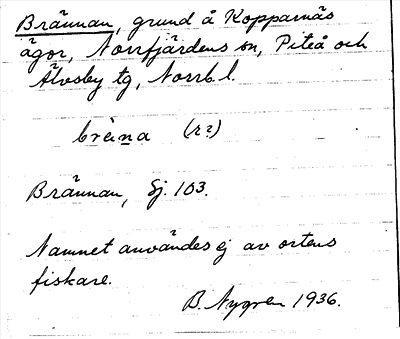 Brännan, grund å Kopparnäs
ägor, Norrfjärdens sn, Piteå och
Älvsby tg, Norrb. l.
brèna (r?)
Brännan, Sj. 103.
Namnet användes ej av ortens
fiskare.
B. Nygren 1936.